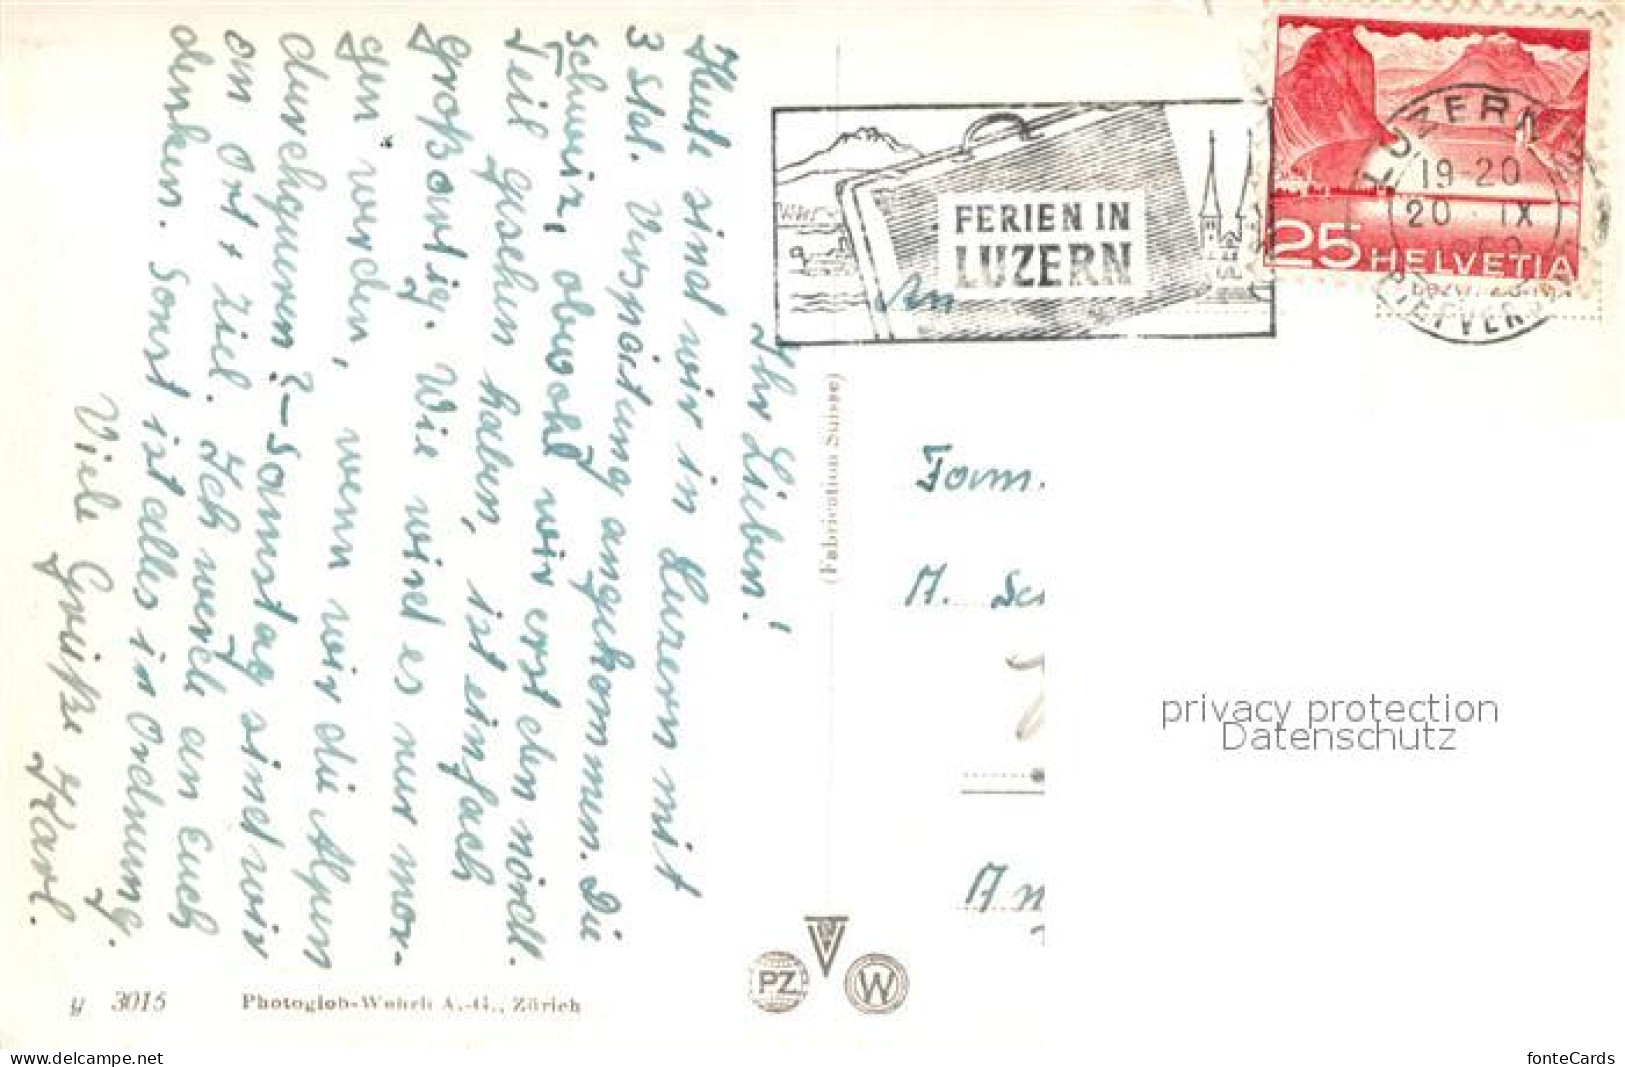 Ihr Lieben!
Heute sind wir in Luzern mit
3 Std. Verspätung angekommen. Die
Schweiz, obwohl wir erst den nördl.
Teil gesehen haben, ist einfach
großartig. Wie wird es nur mor-
gen werden, wenn wir die Alpen
durchqueren? – Samstag sind wir
am Ort + Ziel. Ich werde an Euch
denken. Sonst ist alles in Ordnung.
Viele Grüße
Karl.
y 3015
Photoglob-Wehrli A.-G., Zürich
(Fabrication Suisse)
PZ
W
FERIEN IN
LUZERN
LUZERN
19-20
20. IX
25 HELVETIA
BRIEFVERS
An
Fam.
A.
privacy protection
Datenschutz
www.delcampe.net
fonteCards